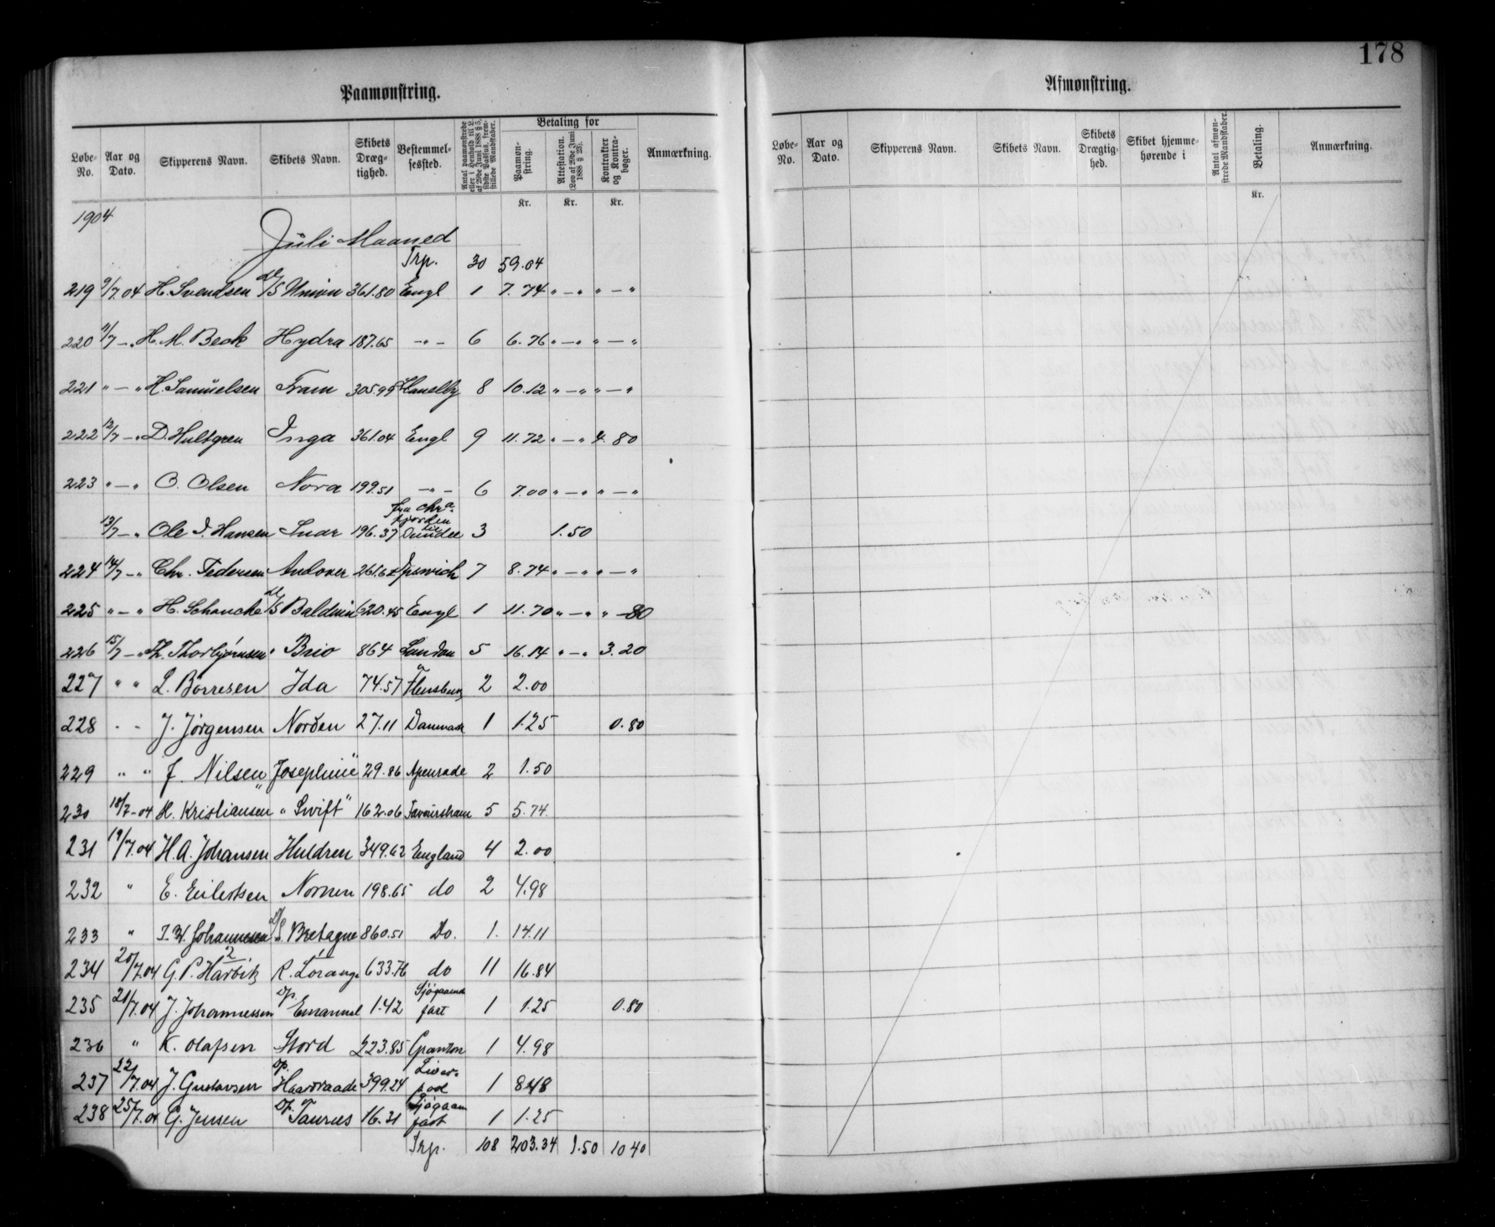 178
Paamønstring.
Løbe-No. Aar og Dato. Skipperens Navn. Skibets Navn. Skibets Dræg-tighed. Bestemmel-sessted. Betaling for Paamøn-string. Attestation. (Lov af 29de Juni 1888 § 28). Kontrakter og Kontra-bøger. Anmærkning.
Kr. Kr. Kr.
1904
Juli Maaned
Trp. 30 59.04
219 9/7.04 H. Svendsen D/S Union 361.80 Engl 1 7.74 " — " " — "
220 11/7 — " H. M. Beck Hydra 187.65 — " — 6 6.76 " — " " — "
221 " — " H. Samuelsen Fram 305.99 8 10.12 " — " " — "
222 12/7 — " D. Hultgren Inga 361.04 Engl 9 11.72 " — " 4.80
223 " — " O. Olsen Nora 199.51 — " — 6 7.00 " — " " — "
13/7 — " Ole I. Hansen 196.37 fra Chr.a fjorden til Dundee 3 1.50
224 14/7 — " Chr. Pedersen Andover 261.62 Ipswich 7 8.74 " — " " — "
225 " — " H. Schancke D/S Baldwin 620.45 Engl 1 11.70 " — " " — 80
226 15/7 — " Th. Thorbjørnsen Brio 864 London 5 16.14 " — " 3.20
227 " " L. Børresen Ida 74.57 Flensburg 2 2.00
228 - - J. Jørgensen Norden 27.11 Danmark 1 1.25 0.80
229 " " J. Nilsen "Josephine" 29.86 Apenrade 2 1.50
230 18/7-04 H. Kristiansen "Swift" 162.06 Faversham 5 5.74
231 19/7.04 H. A. Johansen Huldren 349.62 England 4 2.00
232 " E. Eilertsen Nornen 198.65 do 2 4.98
233 " I. H. Johannesen D/S. Bretagne 860.51 Do. 1. 14.11
234 20/7.04 G. P. Harbitz R. Lorange 633.76 do 11 16.84
235 21/7.04 J. Johannessen Emanuel 1.42 Sjøgaaende fart 1 1.25 0.80
236 " K. Olafsen Stord 223.85 Granton 1 4.98
237 22/7.04 J. Gustavsen Haardraade 399.24 Liver-pool 1 8.48
238 25/7.04 G. Jensen Taurus 16.31 Sjøgaaen fart 1 1.25
Trp. 108 203.34 1.50 10 40
Afmønstring.
Løbe-No. Aar og Dato. Skipperens Navn. Skibets Navn. Skibets Drægtig-hed. Skibet hjemme-hørende i Antal afmøn-strede Mandskaber. Betaling. Anmærkning.
Kr.